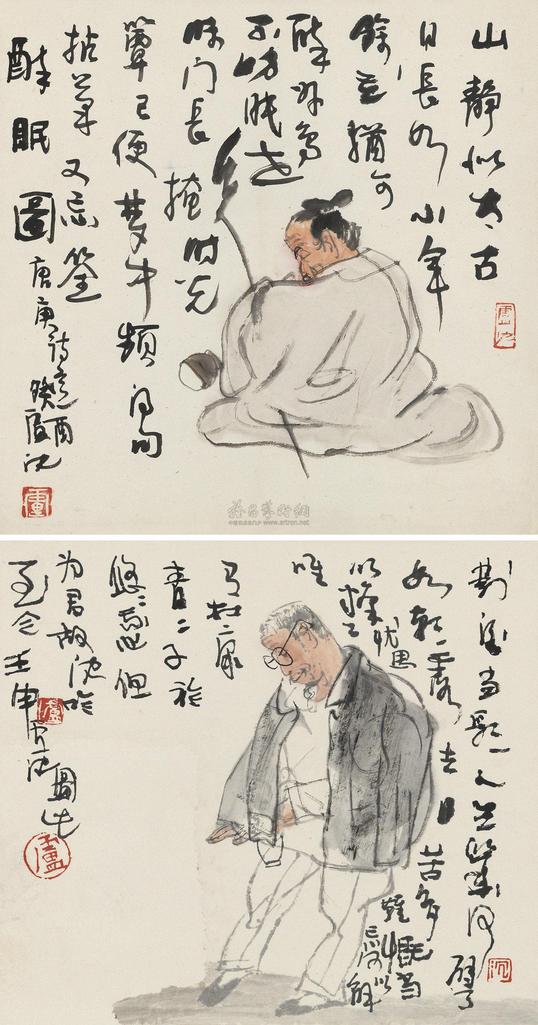 山静似太古
日长如小年
馀花犹可
醉好鸟
不妨眠世
味门长掩时光
簟已便梦中频得句
拈笔又忘筌
醉眠图
唐庚诗意癸酉
卢沉
雅昌艺术网
www.artron.net
对酒当歌人生几何譬
如朝露去日苦多
慨当以慷
忧思
唯
有杜康
青青子衿
悠悠我心但
为君故沉吟
至今壬申卢沉图此